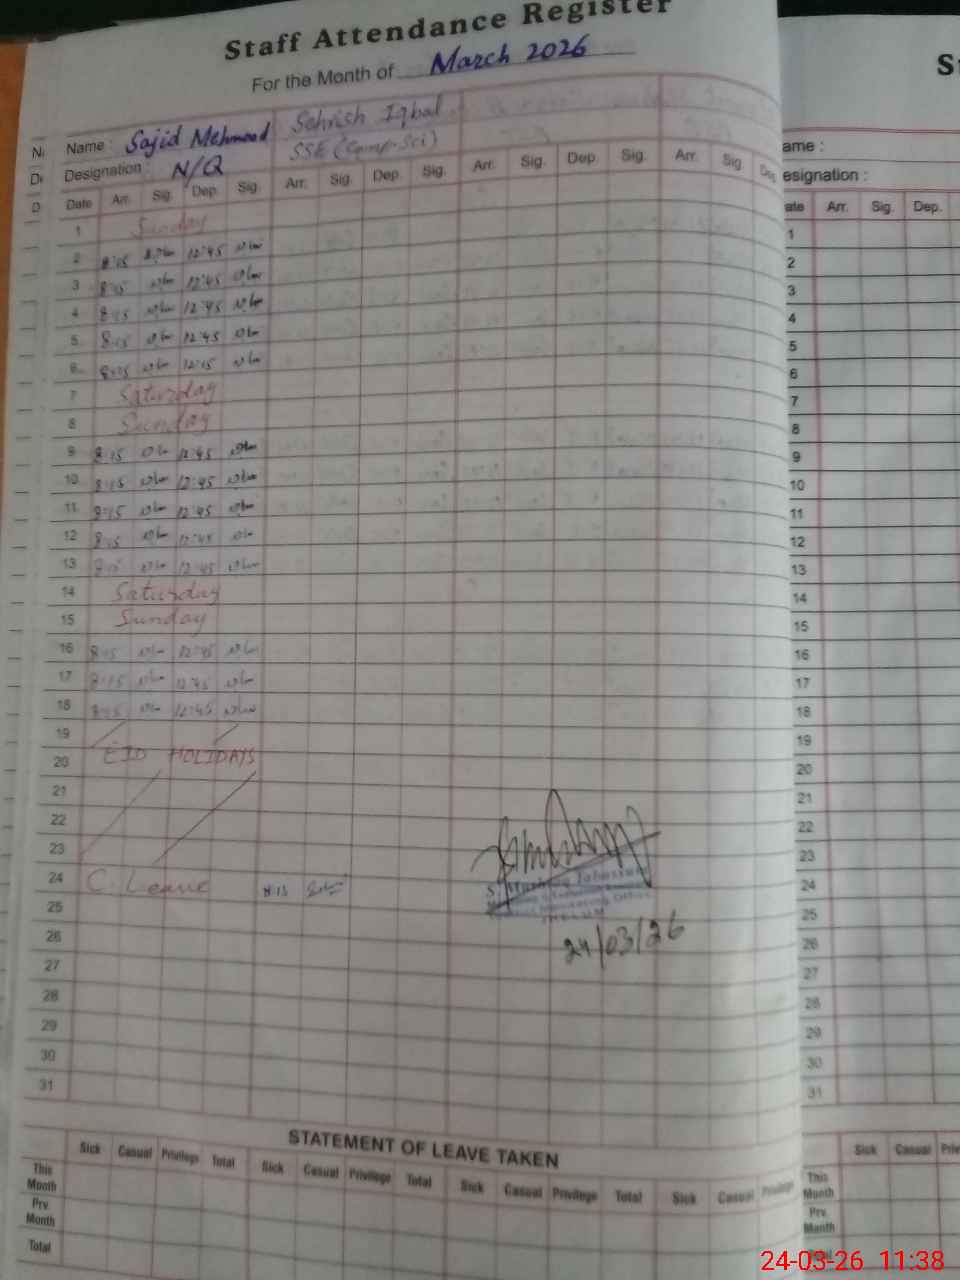 Staff Attendance Register
For the Month of March 2026
Name : Sajid Mehmood Sehrish Iqbal
Designation : N/Q SSE (Comp-Sci)
Date Arr. Sig. Dep. Sig. Arr. Sig. Dep. Sig. Arr. Sig. Dep. Sig. Arr. Sig. Dep.
1 Sunday
2 8:15 12:45
3 8:15 12:45
4 8:15 12:45
5 8:15 12:45
6 8:15 12:15
7 Saturday
8 Sunday
9 8:15 12:45
10 8:15 12:45
11 8:15 12:45
12 8:15 12:45
13 8:15 12:45
14 Saturday
15 Sunday
16 8:15 12:45
17 8:15 12:45
18 8:15 12:45
19
20 EID HOLIDAYS
21
22
23
24 C. Leave 8:15
25
26
27
28
29
30
31
24/03/26
STATEMENT OF LEAVE TAKEN
Sick Casual Privilege Total Sick Casual Privilege Total Sick Casual Privilege Total Sick Casual Privilege
This Month
Prv. Month
Total
S
ame :
esignation :
ate Arr. Sig. Dep.
1
2
3
4
5
6
7
8
9
10
11
12
13
14
15
16
17
18
19
20
21
22
23
24
25
26
27
28
29
30
31
Sick Casual Priv
This Month
Prv. Month
Total
24-03-26 11:38